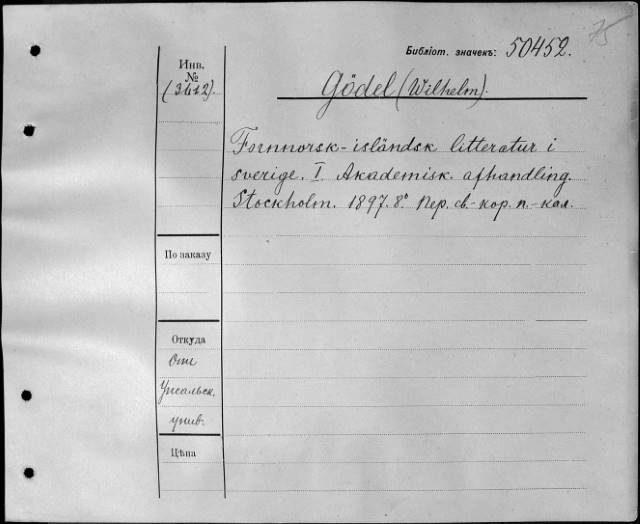 75
Библіот. значекъ: 50452.
Инв.
№
(3612).
Gödel (Wilhelm).
Fornnorsk-isländsk litteratur i
sverige. I Akademisk. afhandling.
Stockholm. 1897. 8º Пер. св.-кор. п.-кал.
По заказу
Откуда
Отъ
Упсальск.
унив.
Цѣна